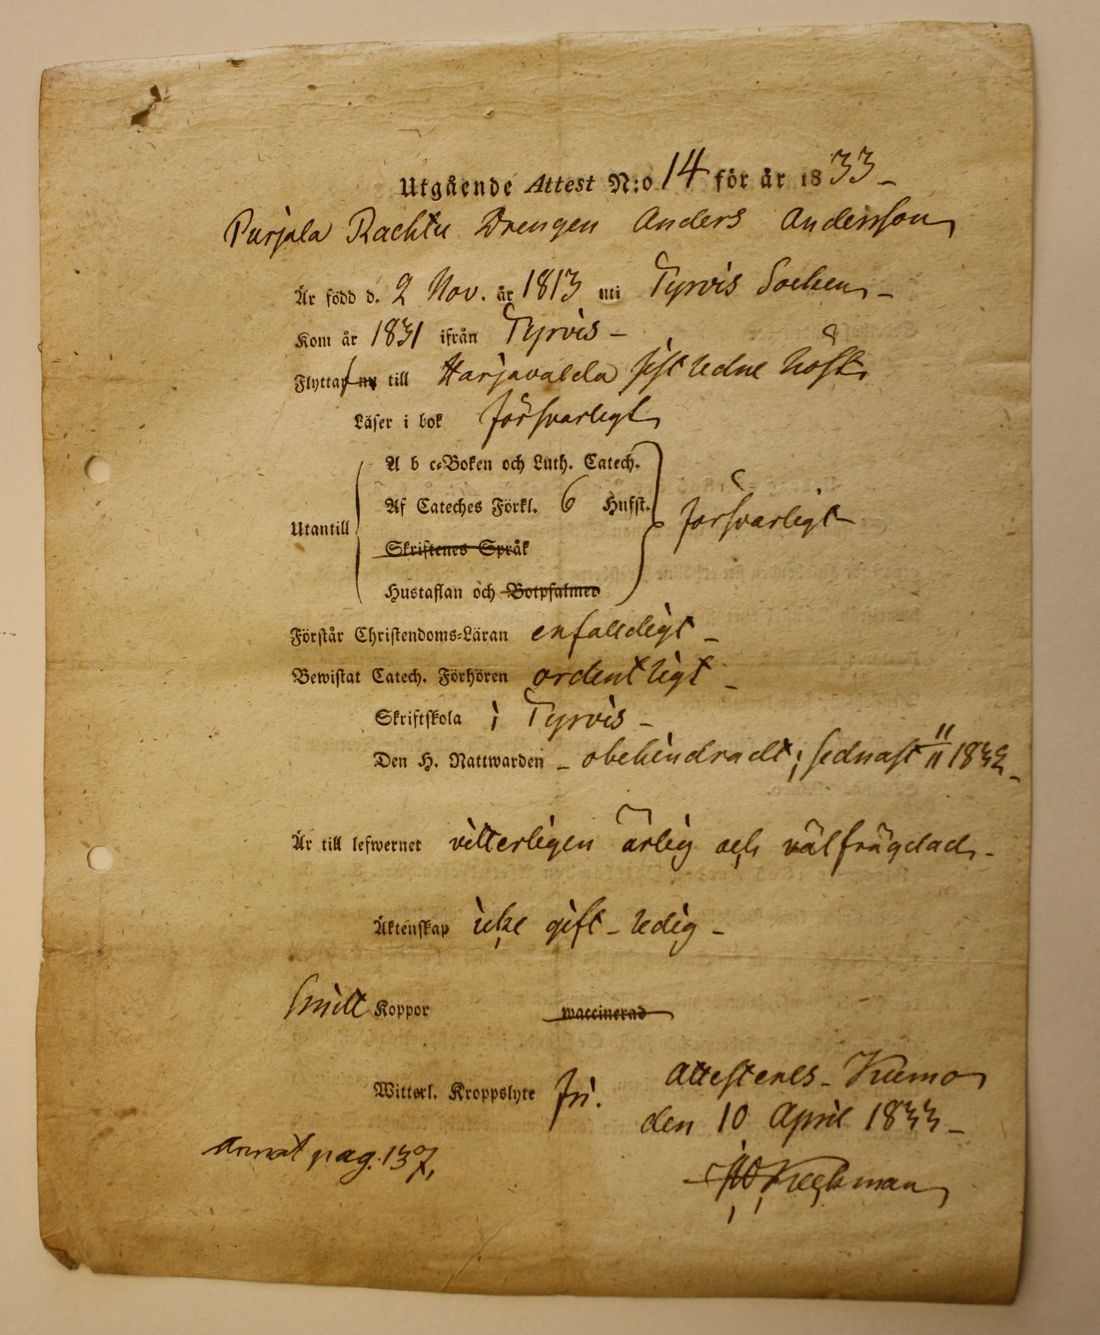 Utgående Attest N:o 14 för år 1833
Purjala Rachtu Drengen Anders Andersson
Är född d. 2 Nov. år 1813 uti Tyrvis Sochen
Kom år 1831 ifrån Tyrvis
Flyttar nu till Harjavalda sistledne höst
Läser i bok försvarligt
A b c-Boken och Luth. Catech.
Af Cateches Förkl. 6 Hufst. försvarligt
Utantill
Skriftenes Språk
Hustaflan och Botpsalmer
Förstår Christendoms-Läran enfalldigt
Bewistat Catech. Förhören ordentligt
Skriftskola i Tyrvis
Den H. Nattwarden obehindradt; sednast 11/11 1832
Är till lefwernet vitterligen ärlig och välfrägdad
Äktenskap icke gift - ledig
Smitt Koppor waccinerad
Witterl. Kroppslyte fri.
Attesteras Kumo
den 10 April 1833
pag. 137,